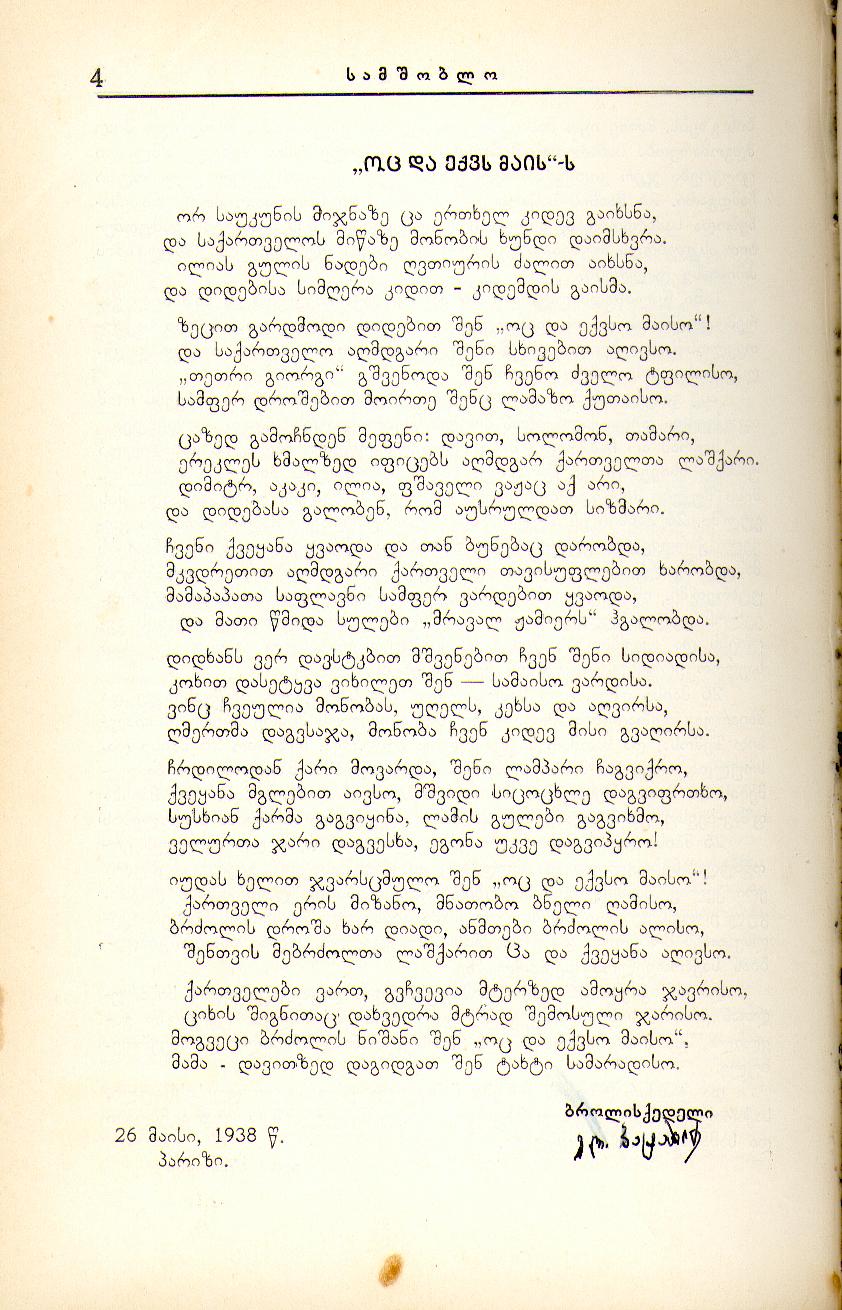 4
სამშობლო
„ოც და ექვს მაის“-ს
ორ საუკუნის მიჯნაზე ცა ერთხელ კიდევ გაიხსნა,
და საქართველოს მიწაზე მონობის ხუნდი დაიმსხვრა.
ილიას გულის ნადები ღვთიურის ძალით აიხსნა,
და დიდებისა სიმღერა კიდით - კიდემდის გაისმა.
ზეცით გარდმოდი დიდებით შენ „ოც და ექვსო მაისო“!
და საქართველო აღმდგარი შენი სხივებით აღივსო.
„თეთრი გიორგი“ გშვენოდა შენ ჩვენო ძველო ტფილისო,
სამფერ დროშებით მოირთე შენც ლამაზო ქუთაისო.
ცაზედ გამოჩნდენ მეფენი: დავით, სოლომონ, თამარი,
ერეკლეს ხმალზედ იფიცებს აღმდგარ ქართველთა ლაშქარი.
დიმიტრ, აკაკი, ილია, ფშაველი ვაჟაც აქ არი,
და დიდებასა გალობენ, რომ აუსრულდათ სიზმარი.
ჩვენი ქვეყანა ყვაოდა და თან ბუნებაც დარობდა,
მკვდრეთით აღმდგარი ქართველი თავისუფლებით ხარობდა,
მამაპაპათა საფლავნი სამფერ ვარდებით ყვაოდა,
და მათი წმიდა სულები „მრავალ ჟამიერს“ ჰგალობდა.
დიდხანს ვერ დავსტკბით მშვენებით ჩვენ შენი სიდიადისა,
კოხით დასეტყვა ვიხილეთ შენ — სამაისო ვარდისა.
ვინც ჩვეულია მონობას, უღელს, კეხსა და აღვირსა,
ღმერთმა დაგვსაჯა, მონობა ჩვენ კიდევ მისი გვაღირსა.
ჩრდილოდან ქარი მოვარდა, შენი ლამპარი ჩაგვიქრო,
ქვეყანა მგლებით აივსო, მშვიდი სიცოცხლე დაგვიფრთხო,
სუსხიან ქარმა გაგვიყინა, ლამის გულები გაგვიხმო,
ველურთა ჯარი დაგვესხა, ეგონა უკვე დაგვიპყრო!
იუდას ხელით ჯვარსცმულო შენ „ოც და ექვსო მაისო“!
ქართველი ერის მიზანო, მნათობო ბნელი ღამისო,
ბრძოლის დროშა ხარ დიადი, ანმთები ბრძოლის ალისო,
შენთვის მებრძოლთა ლაშქარით ცა და ქვეყანა აღივსო.
ქართველები ვართ, გვჩვევია მტერზედ ამოყრა ჯავრისო,
ციხის შიგნითაც დახვედრა მტრად შემოსული ჯარისო.
მოგვეცი ბრძოლის ნიშანი შენ „ოც და ექვსო მაისო“,
მამა - დავითზედ დაგიდგათ შენ ტახტი სამარადისო.
ბროლისქედელი
26 მაისი, 1938 წ.
პარიზი.